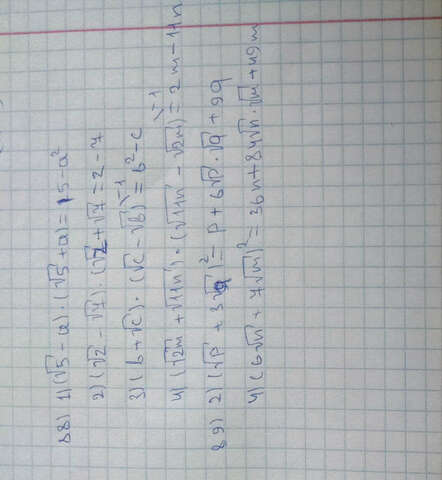 88) 1) (√5 - a) · (√5 + a) = 5 - a²
2) (√2 - √7) · (√2 + √7) = 2 - 7
3) (b + √c) · (√c - √b)⁻¹ = b² - c
4) (√2m + √11n) · (√11n - √2m)⁻¹ = 2m - 11n
89) 2) (√p + 3√q)² = p + 6√p · √q + 9q
4) (6√n + 7√m)² = 36n + 84√n · √m + 49m